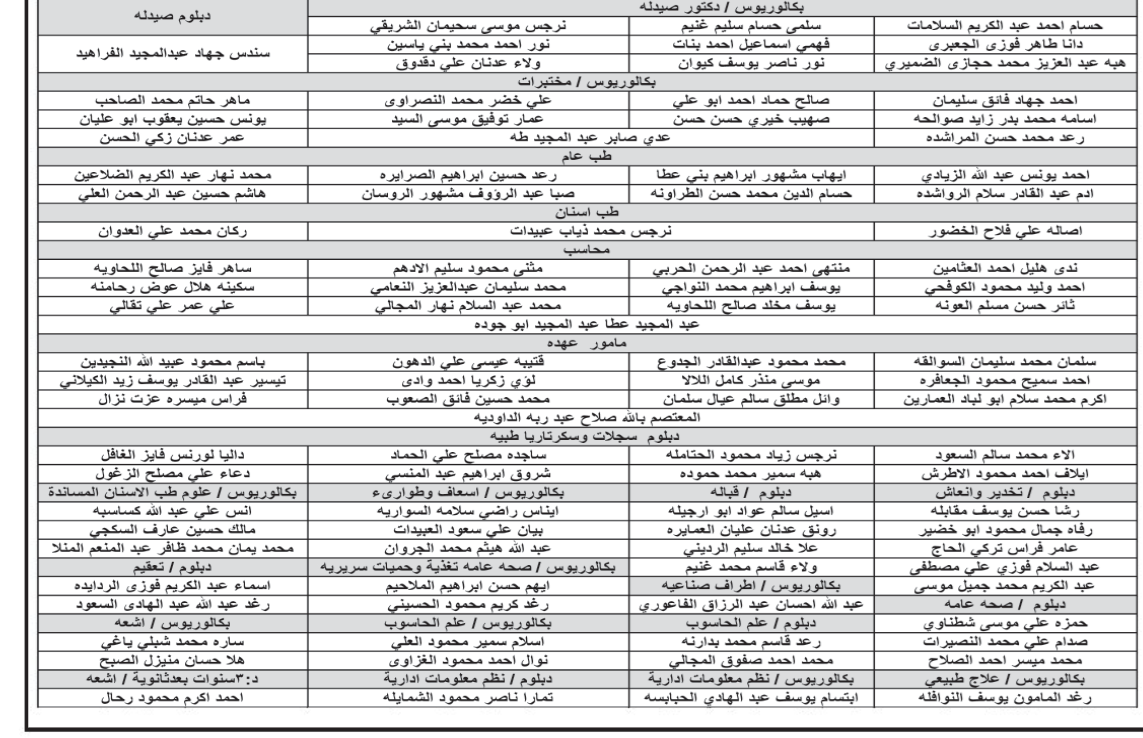 بكالوريوس / دكتور صيدله دبلوم صيدله
حسام احمد عبد الكريم السلامات سلمى حسام سليم غنيم نرجس موسى سحيمان الشريقي
دانا طاهر فوزي الجعبرى فهمي اسماعيل احمد بنات نور احمد محمد بني ياسين سندس جهاد عبدالمجيد الفراهيد
هبه عبد العزيز محمد حجازى الضميري نور ناصر يوسف كيوان ولاء عدنان علي دقدوق
بكالوريوس / مختبرات
احمد جهاد فائق سليمان صالح حماد احمد ابو علي علي خضر محمد النصراوى ماهر حاتم محمد الصاحب
اسامه محمد بدر زايد صوالحه صهيب خيري حسن حسن عمار توفيق موسى السيد يونس حسين يعقوب ابو عليان
رعد محمد حسن المراشده عدي صابر عبد المجيد طه عمر عدنان زكي الحسن
طب عام
احمد يونس عبد الله الزيادي ايهاب مشهور ابراهيم بني عطا رعد حسين ابراهيم الصرايره محمد نهار عبد الكريم الضلاعين
ادم عبد القادر سلام الرواشده حسام الدين محمد حسن الطراونه صبا عبد الرؤوف مشهور الروسان هاشم حسين عبد الرحمن العلي
طب اسنان
اصاله علي فلاح الخضور نرجس محمد ذياب عبيدات ركان محمد علي العدوان
محاسب
ندى هليل احمد العثامين منتهى احمد عبد الرحمن الحربي مثنى محمود سليم الادهم ساهر فايز صالح اللحاويه
احمد وليد محمود الكوفحي يوسف ابراهيم محمد النواجي محمد سليمان عبدالعزيز النعامي سكينه هلال عوض رحامنه
ثائر حسن مسلم العونه يوسف مخلد صالح اللحاويه محمد عبد السلام نهار المجالي علي عمر علي تقالي
عبد المجيد عطا عبد المجيد ابو جوده
مامور عهده
سلمان محمد سليمان السوالقه محمد محمود عبدالقادر الجدوع قتيبه عيسى علي الدهون باسم محمود عبيد الله النجيدين
احمد سميح محمود الجعافره موسى منذر كامل اللالا لؤي زكريا احمد وادى تيسير عبد القادر يوسف زيد الكيلاني
اكرم محمد سلام ابو لباد العمارين وائل مطلق سالم عيال سلمان محمد حسين فائق الصعوب فراس ميسره عزت نزال
المعتصم بالله صلاح عبد ربه الداوديه
دبلوم سجلات وسكرتاريا طبيه
الاء محمد سالم السعود نرجس زياد محمود الحتامله ساجده مصلح علي الحماد داليا لورنس فايز الغافل
ايلاف احمد محمود الاطرش هبه سمير محمد حموده شروق ابراهيم عبد المنسي دعاء علي مصلح الزغول
دبلوم / تخدير وانعاش دبلوم / قباله بكالوريوس / اسعاف وطوارىء بكالوريوس / علوم طب الاسنان المساندة
رشا حسن يوسف مقابله اسيل سالم عواد ابو ارجيله ايناس راضي سلامه السواريه انس علي عبد الله كساسبه
رفاه جمال محمود ابو خضير رونق عدنان عليان العمايره بيان علي سعود العبيدات مالك حسين عارف السكجي
عامر فراس تركي الحاج علا خالد سليم الرديني عبد الله هيثم محمد الجروان محمد يمان محمد ظافر عبد المنعم المنلا
عبد السلام فوزي علي مصطفى ولاء قاسم محمد غنيم بكالوريوس / صحه عامه تغذية وحميات سريريه دبلوم / تعقيم
عبد الكريم محمد جميل موسى بكالوريوس / اطراف صناعيه ايهم حسن ابراهيم الملاحيم اسماء عبد الكريم فوزى الردايده
دبلوم / صحه عامه عبد الله احسان عبد الرزاق الفاعوري رغد كريم محمود الحسيني رغد عبد الله عبد الهادى السعود
حمزه علي موسى شطناوي دبلوم / علم الحاسوب بكالوريوس / علم الحاسوب بكالوريوس / اشعه
صدام علي محمد النصيرات رعد قاسم محمد بدارنه اسلام سمير محمود العلي ساره محمد شبلي ياغي
محمد ميسر احمد الصلاح محمد احمد صفوق المجالي نوال احمد محمود الغزاوى هلا حسان منيزل الصبح
بكالوريوس / علاج طبيعي بكالوريوس / نظم معلومات ادارية دبلوم / نظم معلومات ادارية د:٣سنوات بعدثانوية / اشعه
رغد المامون يوسف النوافله ابتسام يوسف عبد الهادي الحبابسه تمارا ناصر محمود الشمايله احمد اكرم محمود رحال